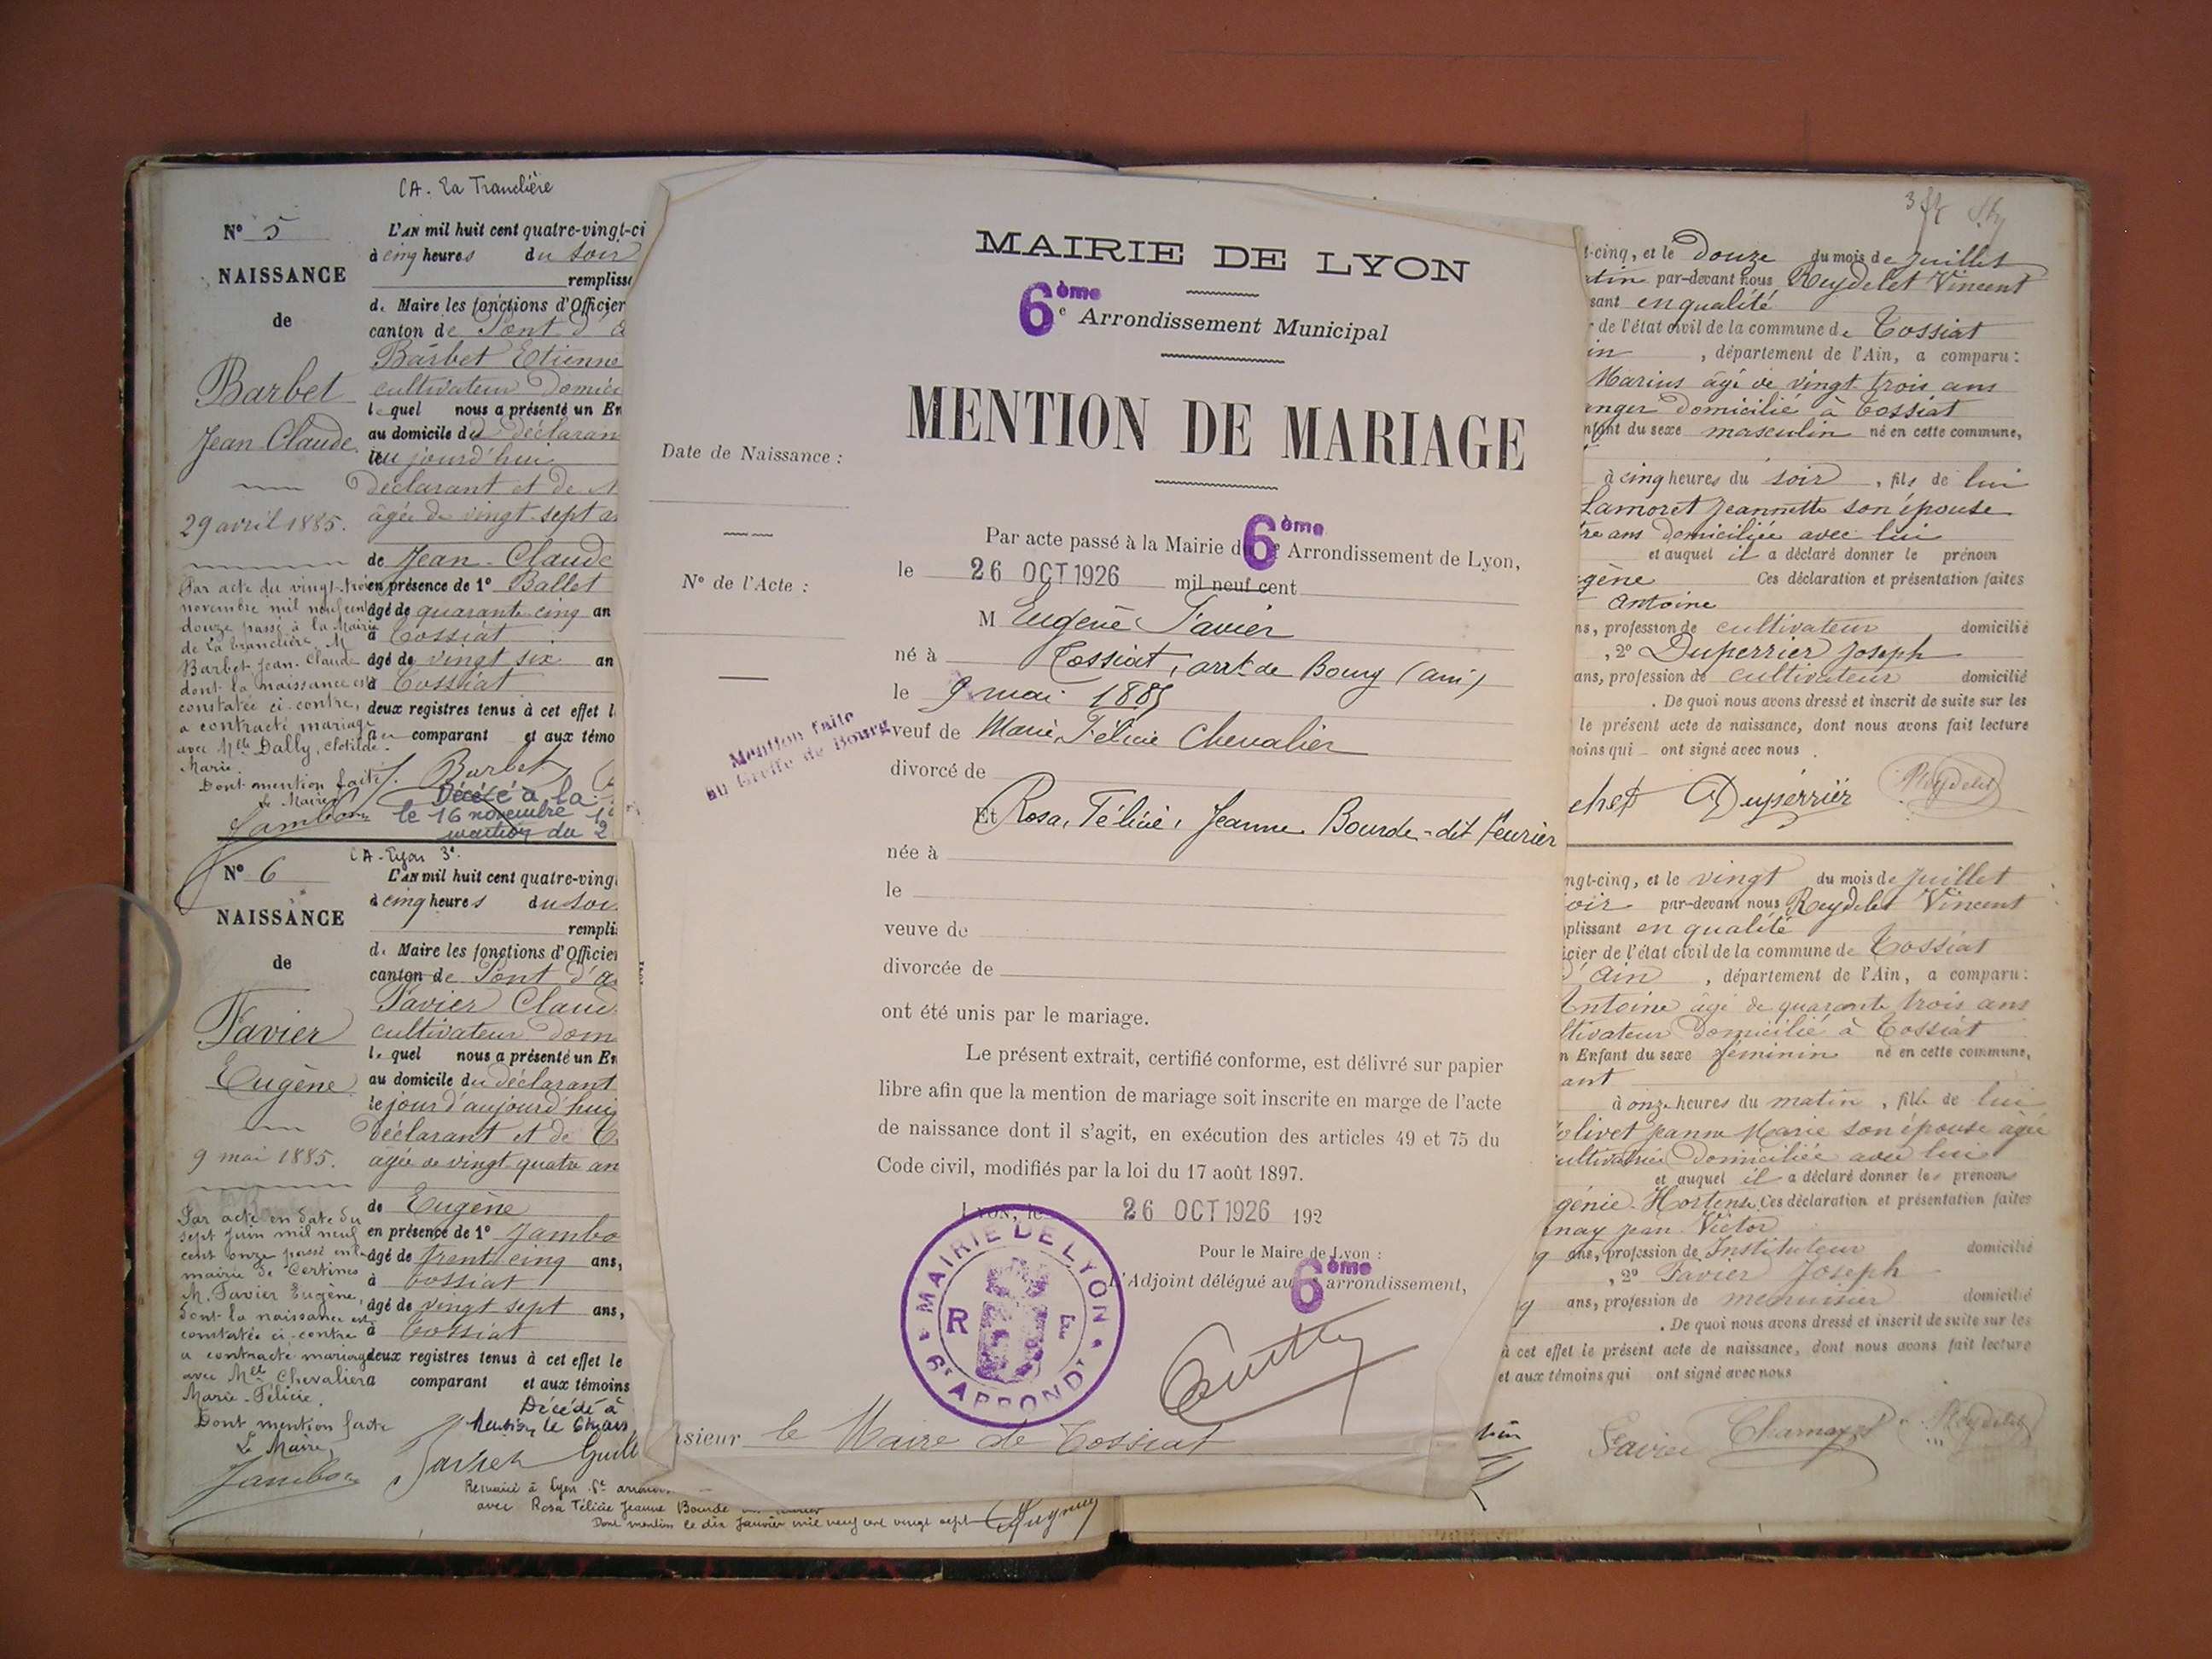 CA. La Tranclière
N° 5
NAISSANCE
de
Barbet
Jean Claude
29 avril 1885.
Par acte du vingt-trois
novembre mil neuf cent
douze passé à la Mairie
de La Tranclière, M
Barbet Jean-Claude
dont la naissance est
constatée ci-contre,
a contracté mariage
avec Mlle Dally, Clotilde
Marie.
Dont mention faite
Le Maire
Jambon
L'AN mil huit cent quatre-vingt-ci
à cinq heures du soir
remplisse
de Maire les fonctions d'Officier
canton de Pont d'a
Barbet Etienne
cultivateur domici
lequel nous a présenté un En
au domicile du déclaran
au jourd'hui
déclarant et de
âgée de vingt-sept a
de Jean-Claude
en présence de 1° Ballet
âgé de quarante cinq an
à Tossiat
âgé de vingt six an
à Tossiat
deux registres tenus à cet effet l
comparant et aux témo
J. Barbet
Décédé à la
le 16 novembre
mention du 2
CA-Lyon 3e.
N° 6
NAISSANCE
de
Favier
Eugène
9 mai 1885.
Par acte en date du
sept juin mil neuf
cent onze passé en la
mairie de Certines
M. Favier Eugène,
dont la naissance est
constatée ci-contre
a contracté mariage
avec Melle Chevalier
Marie-Félicie.
Dont mention faite
Le Maire,
Jambon
L'AN mil huit cent quatre-ving
à cinq heures du soi
rempli
de Maire les fonctions d'Officier
canton de Pont d'a
Favier Claud
cultivateur dom
lequel nous a présenté un En
au domicile du déclarant
le jour d'aujourd'hui
déclarant et de
âgée de vingt-quatre an
de Eugène
en présence de 1° Jambo
âgé de trente cinq ans,
à Tossiat
âgé de vingt sept ans,
à Tossiat
deux registres tenus à cet effet le
a comparant et aux témoins
Décédé à
le 6 mars
Remarié à Lyon 6e arrond
avec Rosa Félicie Jeanne Bourde
Dont mention le dix janvier mil neuf cent vingt sept
MAIRIE DE LYON
6ème e Arrondissement Municipal
MENTION DE MARIAGE
Date de Naissance :
N° de l'Acte :
Mention faite
au Greffe de Bourg
Par acte passé à la Mairie du 6ème e Arrondissement de Lyon,
le 26 OCT 1926 mil neuf cent
M Eugène Favier
né à Tossiat, arrt de Bourg (ain)
le 9 mai 1885
veuf de Marie, Félicie Chevalier
divorcé de
Et Rosa, Félicie, Jeanne Bourde-dit février
née à
le
veuve de
divorcée de
ont été unis par le mariage.
Le présent extrait, certifié conforme, est délivré sur papier
libre afin que la mention de mariage soit inscrite en marge de l'acte
de naissance dont il s'agit, en exécution des articles 49 et 75 du
Code civil, modifiés par la loi du 17 août 1897.
Lyon, le 26 OCT 1926 192
Pour le Maire de Lyon :
L'Adjoint délégué au 6ème arrondissement,
MAIRIE DE LYON
R F
6e ARRONDt
sieur le Maire de Tossiat
3
t-cinq, et le douze du mois de juillet
atin par-devant nous Reydelet Vincent
sant en qualité
r de l'état civil de la commune de Tossiat
in , département de l'Ain, a comparu :
Marius âgé de vingt-trois ans
anger domicilié à Tossiat
nfant du sexe masculin né en cette commune,
à cinq heures du soir , fils de lui
Lamoret Jeannette son épouse
re ans domiciliée avec lui
et auquel il a déclaré donner le prénom
gène Ces déclaration et présentation faites
Antoine
ns, profession de cultivateur domicilié
, 2° Duperrier Joseph
ans, profession de cultivateur domicilié
. De quoi nous avons dressé et inscrit de suite sur les
le présent acte de naissance, dont nous avons fait lecture
moins qui ont signé avec nous .
Duperrier Reydelet
ngt-cinq, et le vingt du mois de juillet
oir par-devant nous Reydelet Vincent
plissant en qualité
icier de l'état civil de la commune de Tossiat
d'Ain , département de l'Ain, a comparu :
Antoine âgé de quarante trois ans
ltivateur domicilié à Tossiat
n Enfant du sexe féminin né en cette commune,
ant
à onze heures du matin , fille de lui
olivet Jeanne Marie son épouse âgée
ultivatrice domiciliée avec lui
et auquel il a déclaré donner les prénoms
génie-Hortense Ces déclaration et présentation faites
nay Jean Victor
ans, profession de Instituteur domicilié
, 2° Favier Joseph
ans, profession de menuisier domicilié
. De quoi nous avons dressé et inscrit de suite sur les
à cet effet le présent acte de naissance, dont nous avons fait lecture
et aux témoins qui ont signé avec nous
Favier Chamay Reydelet